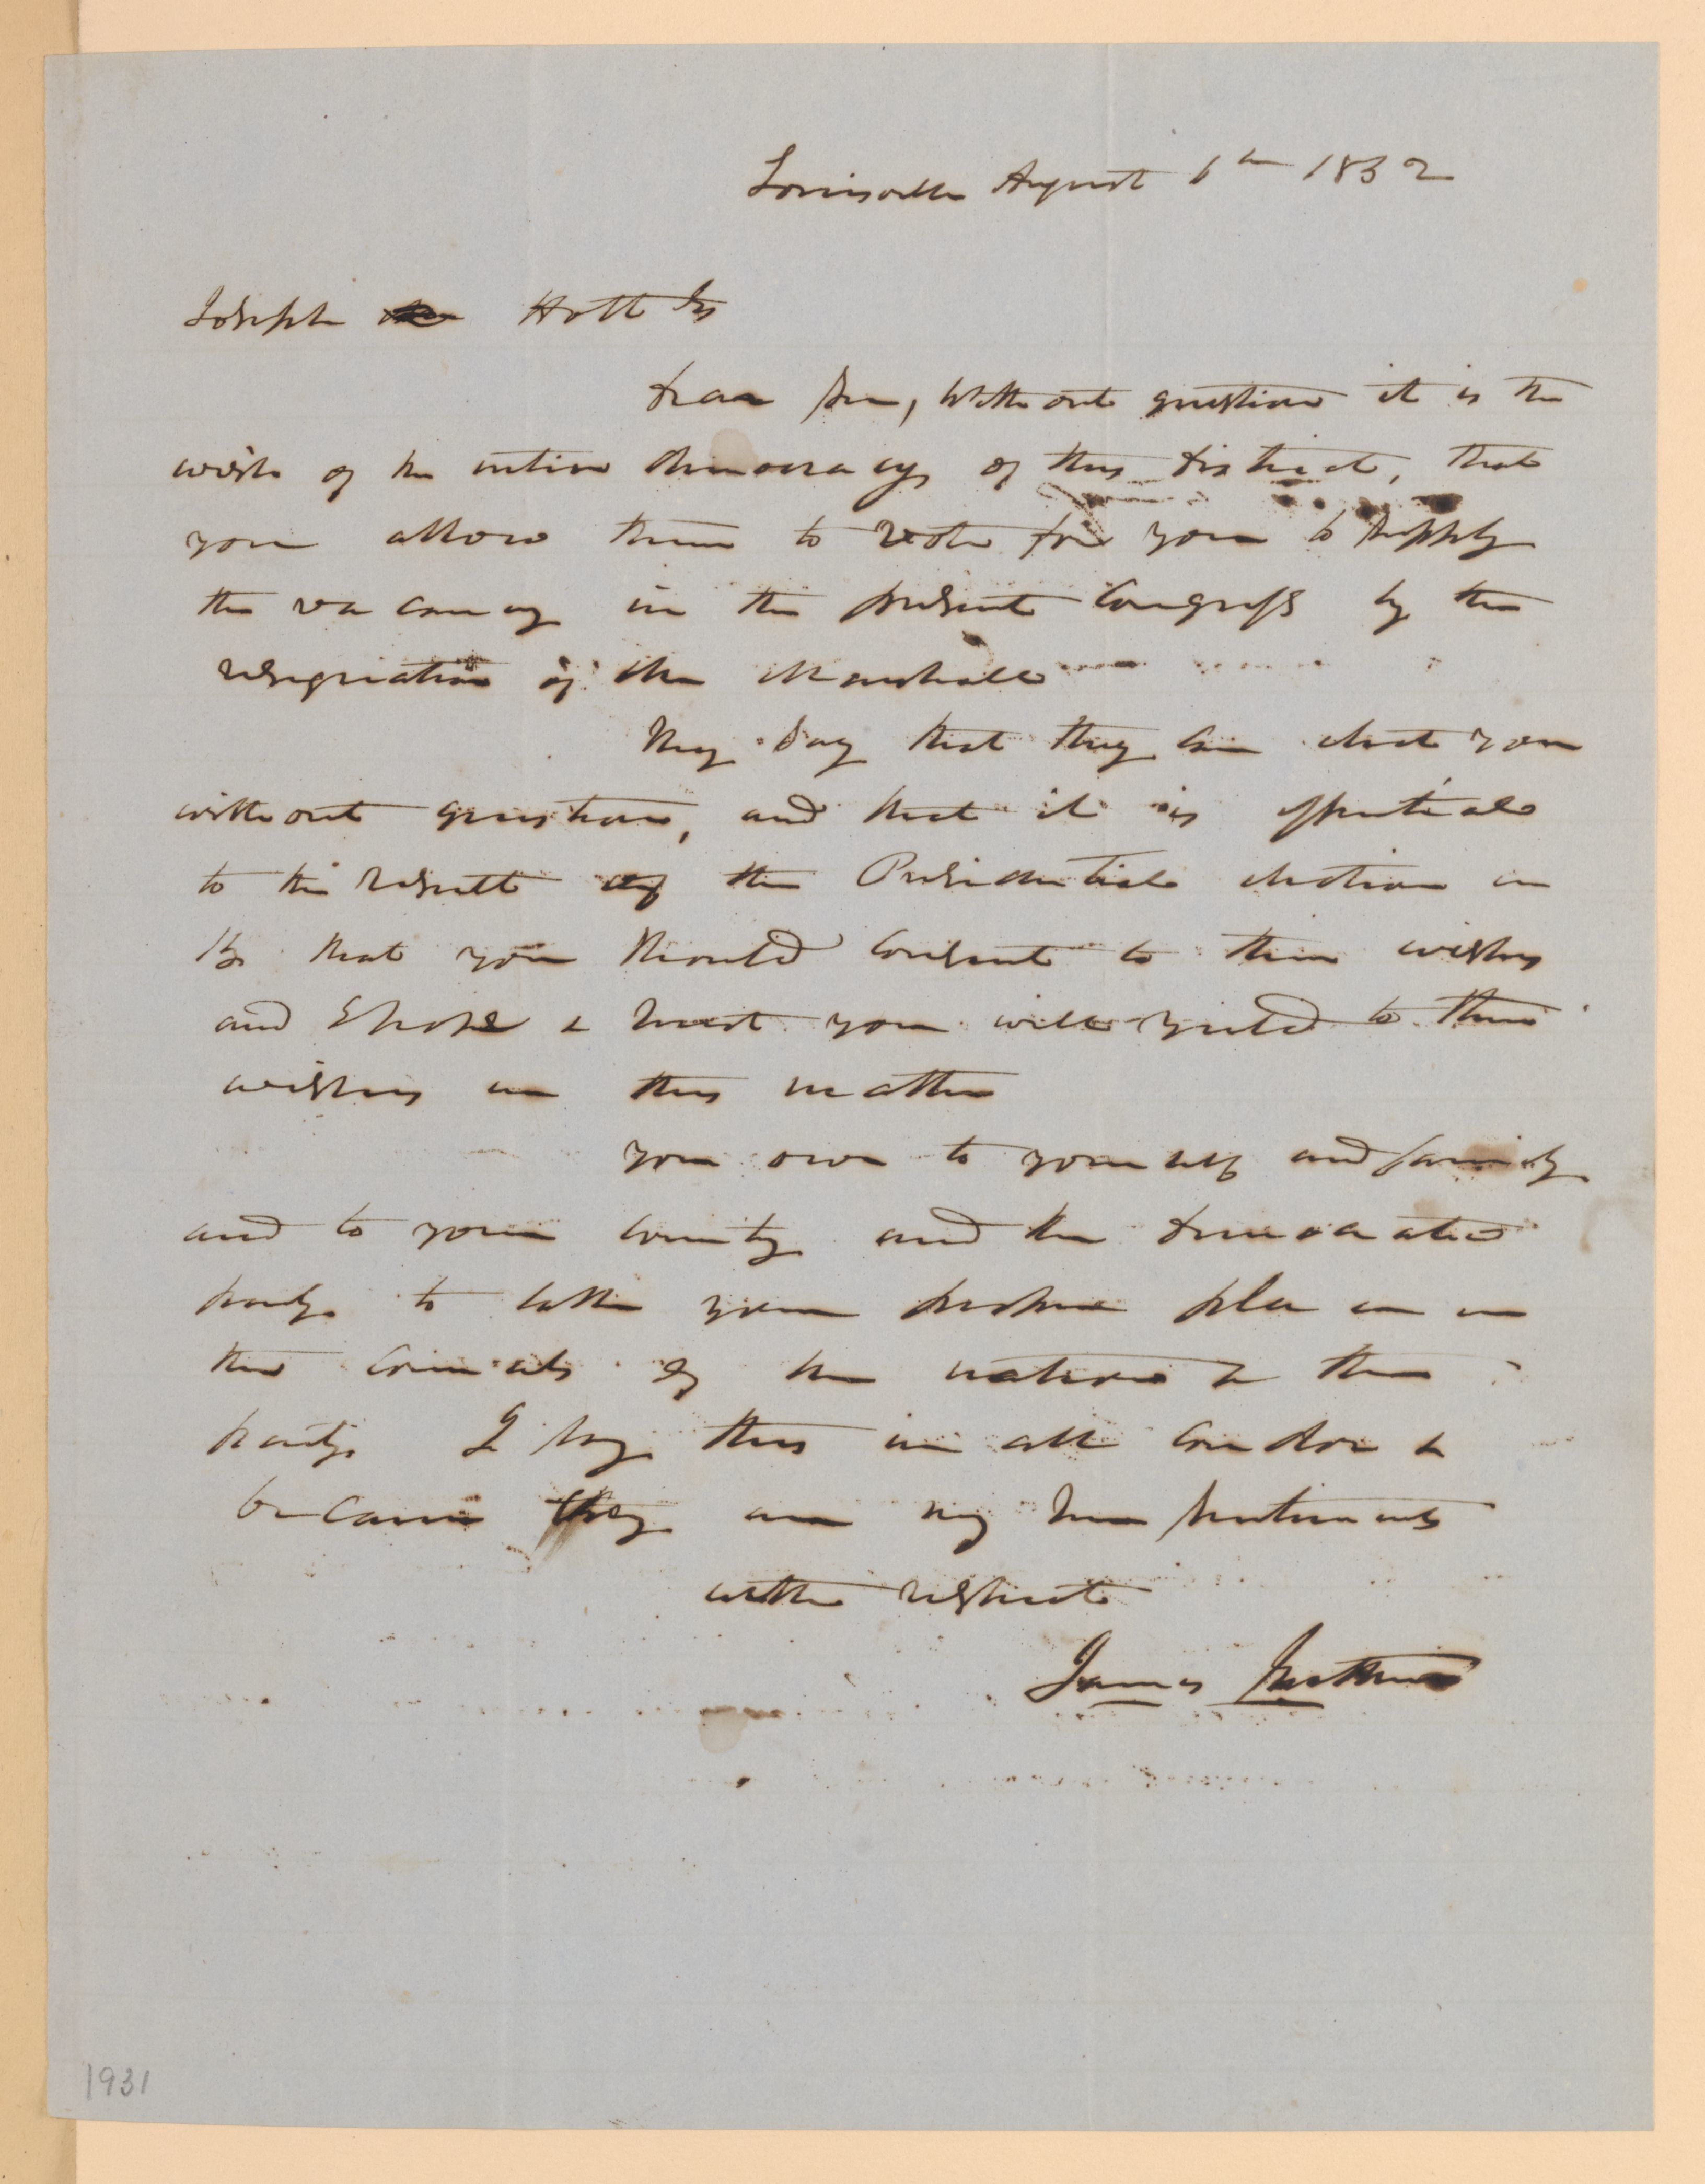 Louisville August 6th 1852
Joseph Holt Esq
Dear Sir, Without question it is the
wish of the entire democracy of this district, that
you allow them to vote for you to supply
the vacancy in the present Congress by the
resignation of Mr Marshall
They say that they can elect you
without question, and that it is essential
to the result of the Presidential election in
Ky that you should consent to their wishes
and I hope & trust you will yield to their
wishes in this matter
you owe to yourself and family
and to your country and the democratic
party to take your proper place in
the councils of the nation & the
party I say this in all candor &
because they are my true sentiments
with respect
James
1931